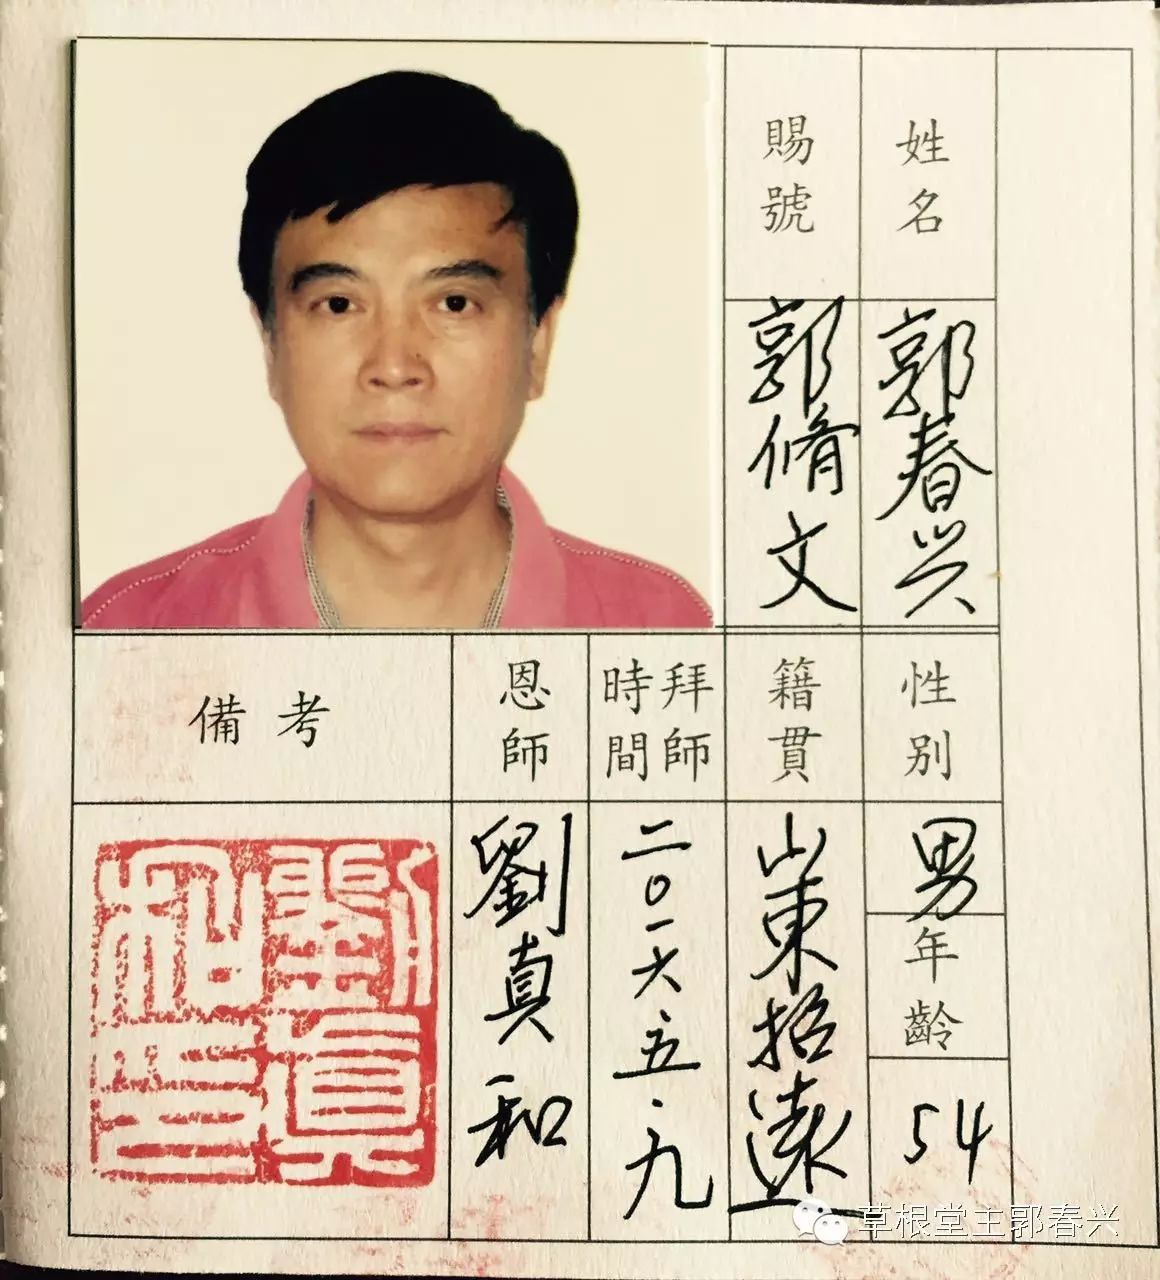 姓名
郭春兴
賜號
郭脩文
性别
男
年齡
54
籍貫
山東招遠
拜師時間
二0一六·五·九
恩師
劉真和
備考
劉真和印
草根堂主郭春兴